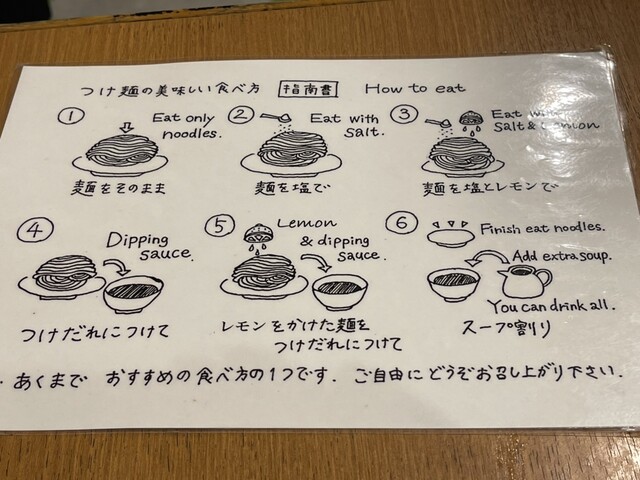 つけ麺の美味しい食べ方 指南書 How to eat
①
Eat only
noodles.
麺をそのまま
②
Eat with
salt.
麺を塩で
③
Eat with
Salt & Lemon
麺を塩とレモンで
④
Dipping
sauce.
つけだれにつけて
⑤
Lemon
& dipping
sauce.
レモンをかけた麺を
つけだれにつけて
⑥
Finish eat noodles.
Add extra soup.
You can drink all.
スープ割り
・あくまで おすすめの食べ方の1つです. ご自由にどうぞお召し上がり下さい.